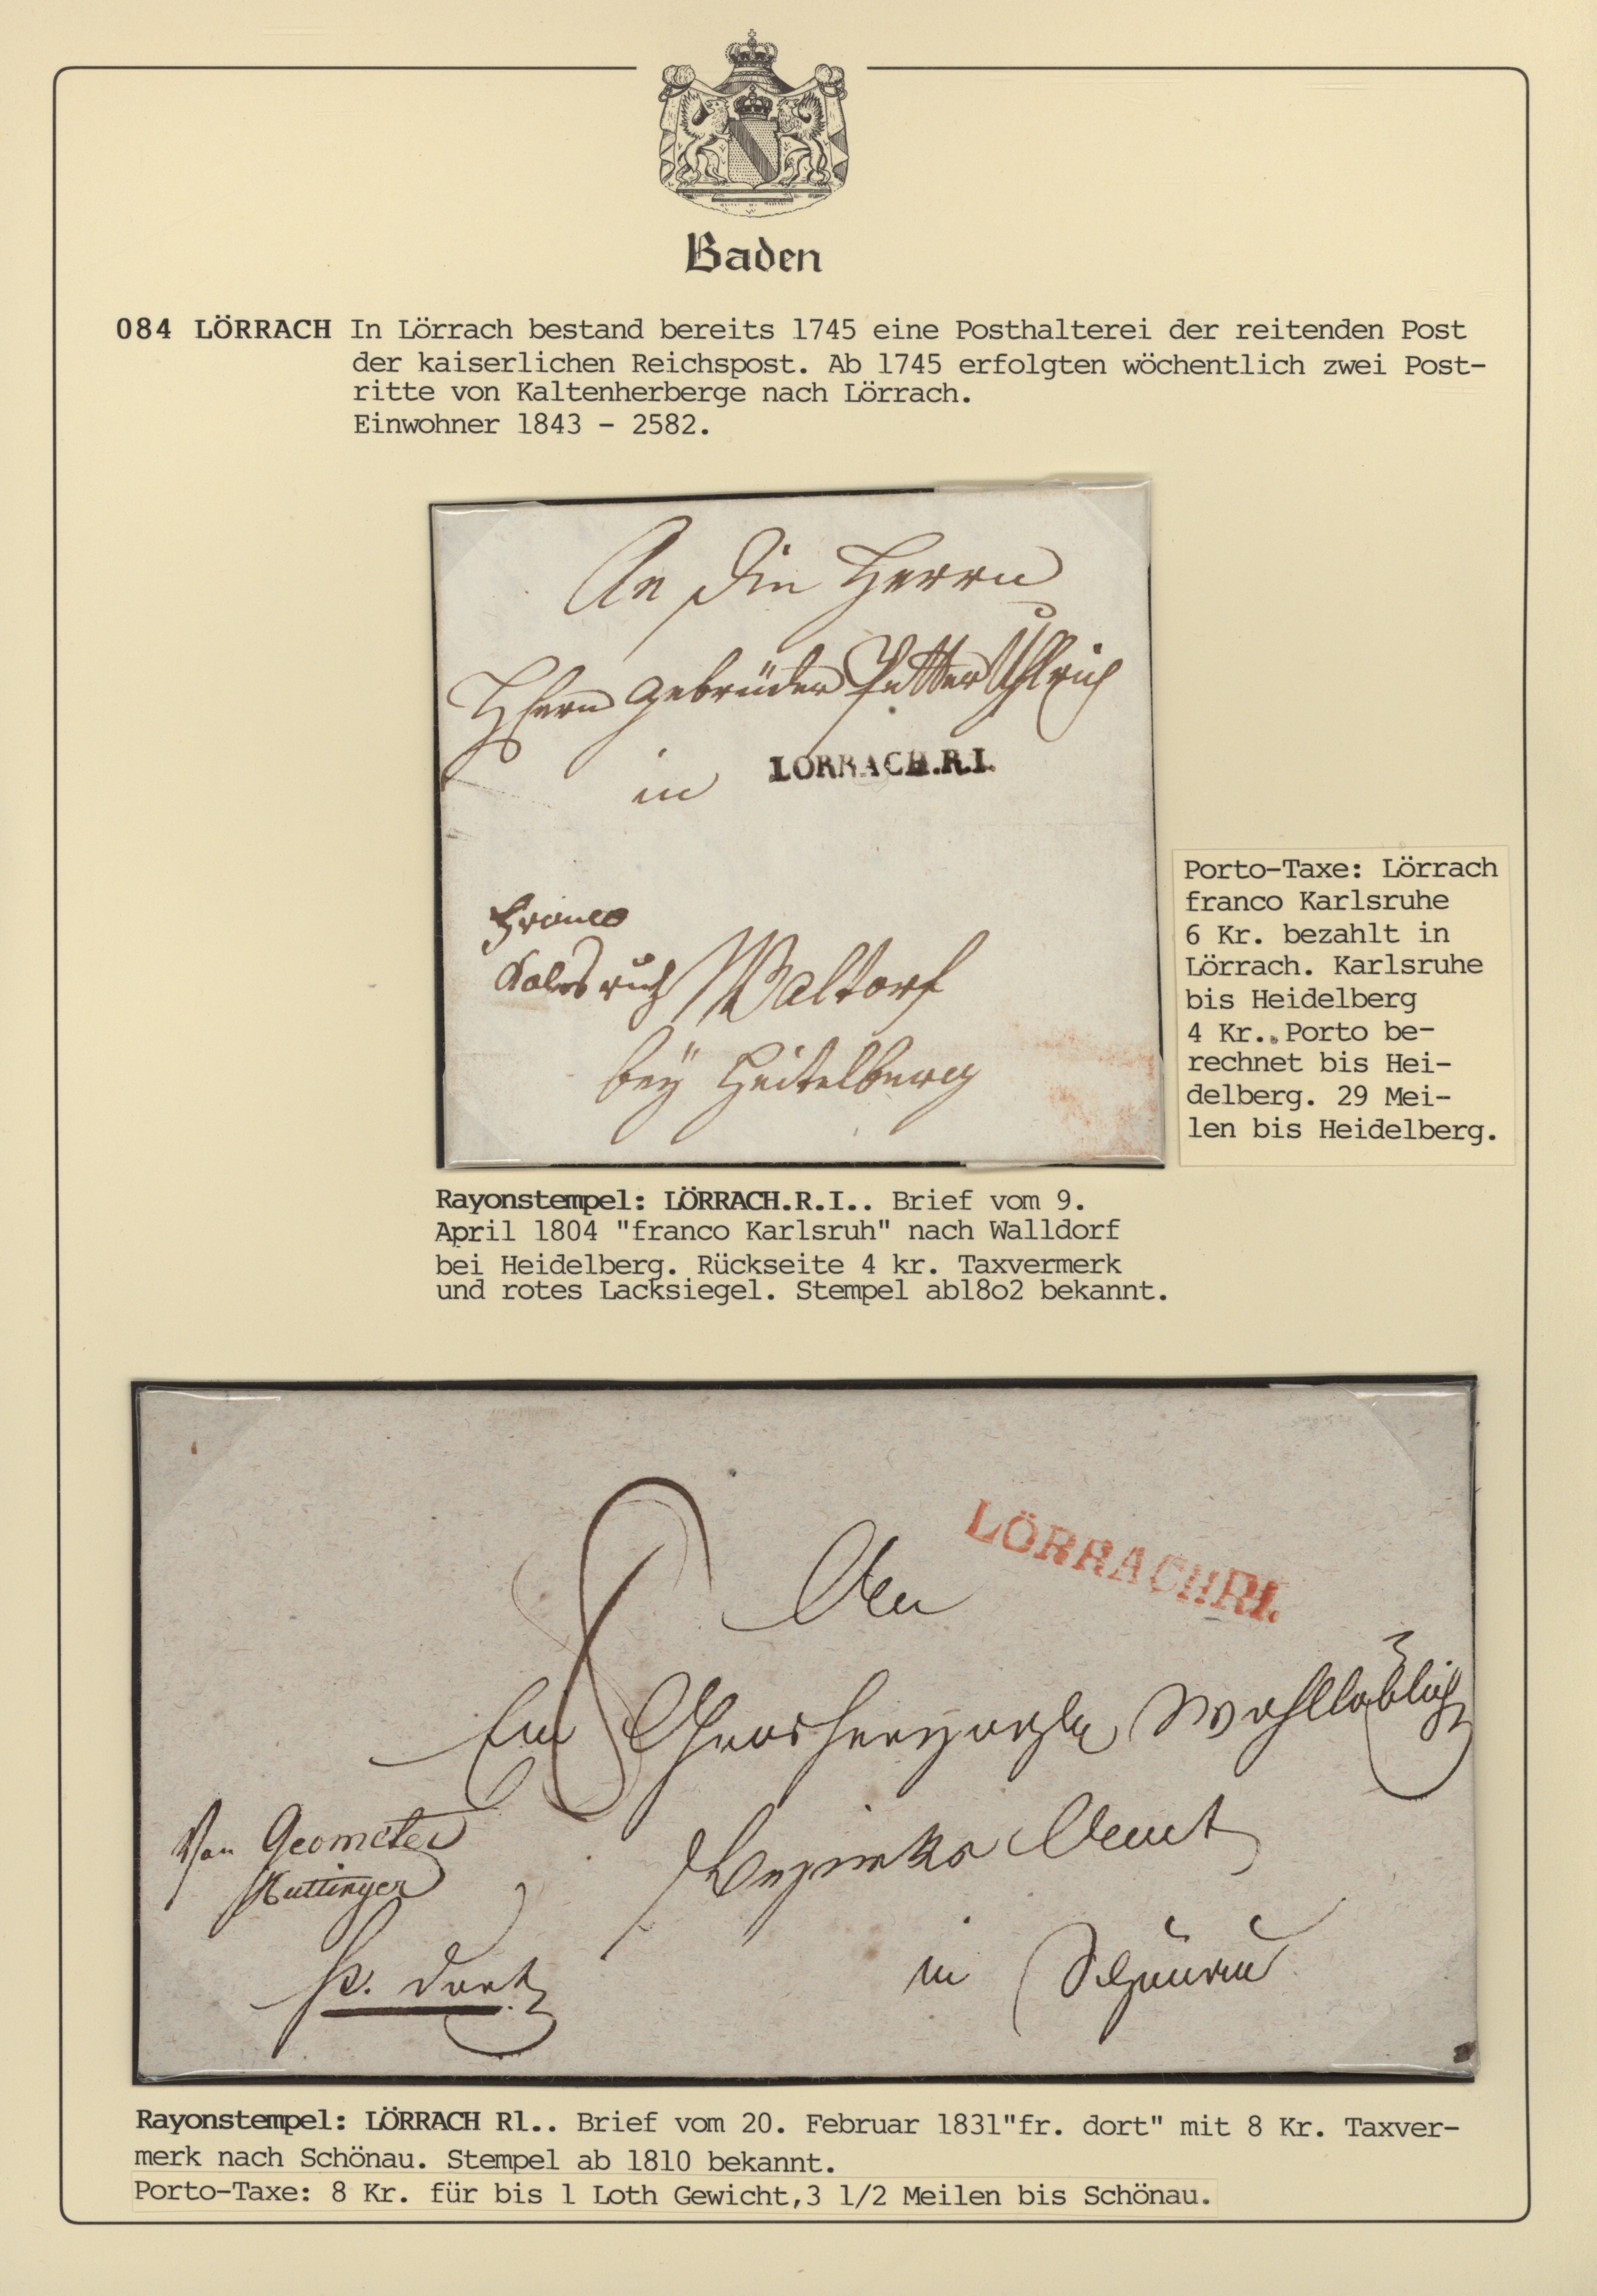 Baden
084 LÖRRACH In Lörrach bestand bereits 1745 eine Posthalterei der reitenden Post
der kaiserlichen Reichspost. Ab 1745 erfolgten wöchentlich zwei Post-
ritte von Kaltenherberge nach Lörrach.
Einwohner 1843 - 2582.
An die Herrn
Herrn Gebrüder
in
LÖRRACH.R.I.
Franco
Kalsruh
Waltorf
bey Heitelberg
Porto-Taxe: Lörrach
franco Karlsruhe
6 Kr. bezahlt in
Lörrach. Karlsruhe
bis Heidelberg
4 Kr. Porto be-
rechnet bis Hei-
delberg. 29 Mei-
len bis Heidelberg.
Rayonstempel: LÖRRACH.R.I.. Brief vom 9.
April 1804 "franco Karlsruh" nach Walldorf
bei Heidelberg. Rückseite 4 kr. Taxvermerk
und rotes Lacksiegel. Stempel ab18o2 bekannt.
LÖRRACH R1.
8
An
Ein Grosherzogle Wohllöblich
Bezirks Amt
in Schönau
Von Geometer
fr. dort
Rayonstempel: LÖRRACH R1.. Brief vom 20. Februar 1831"fr. dort" mit 8 Kr. Taxver-
merk nach Schönau. Stempel ab 1810 bekannt.
Porto-Taxe: 8 Kr. für bis 1 Loth Gewicht,3 1/2 Meilen bis Schönau.